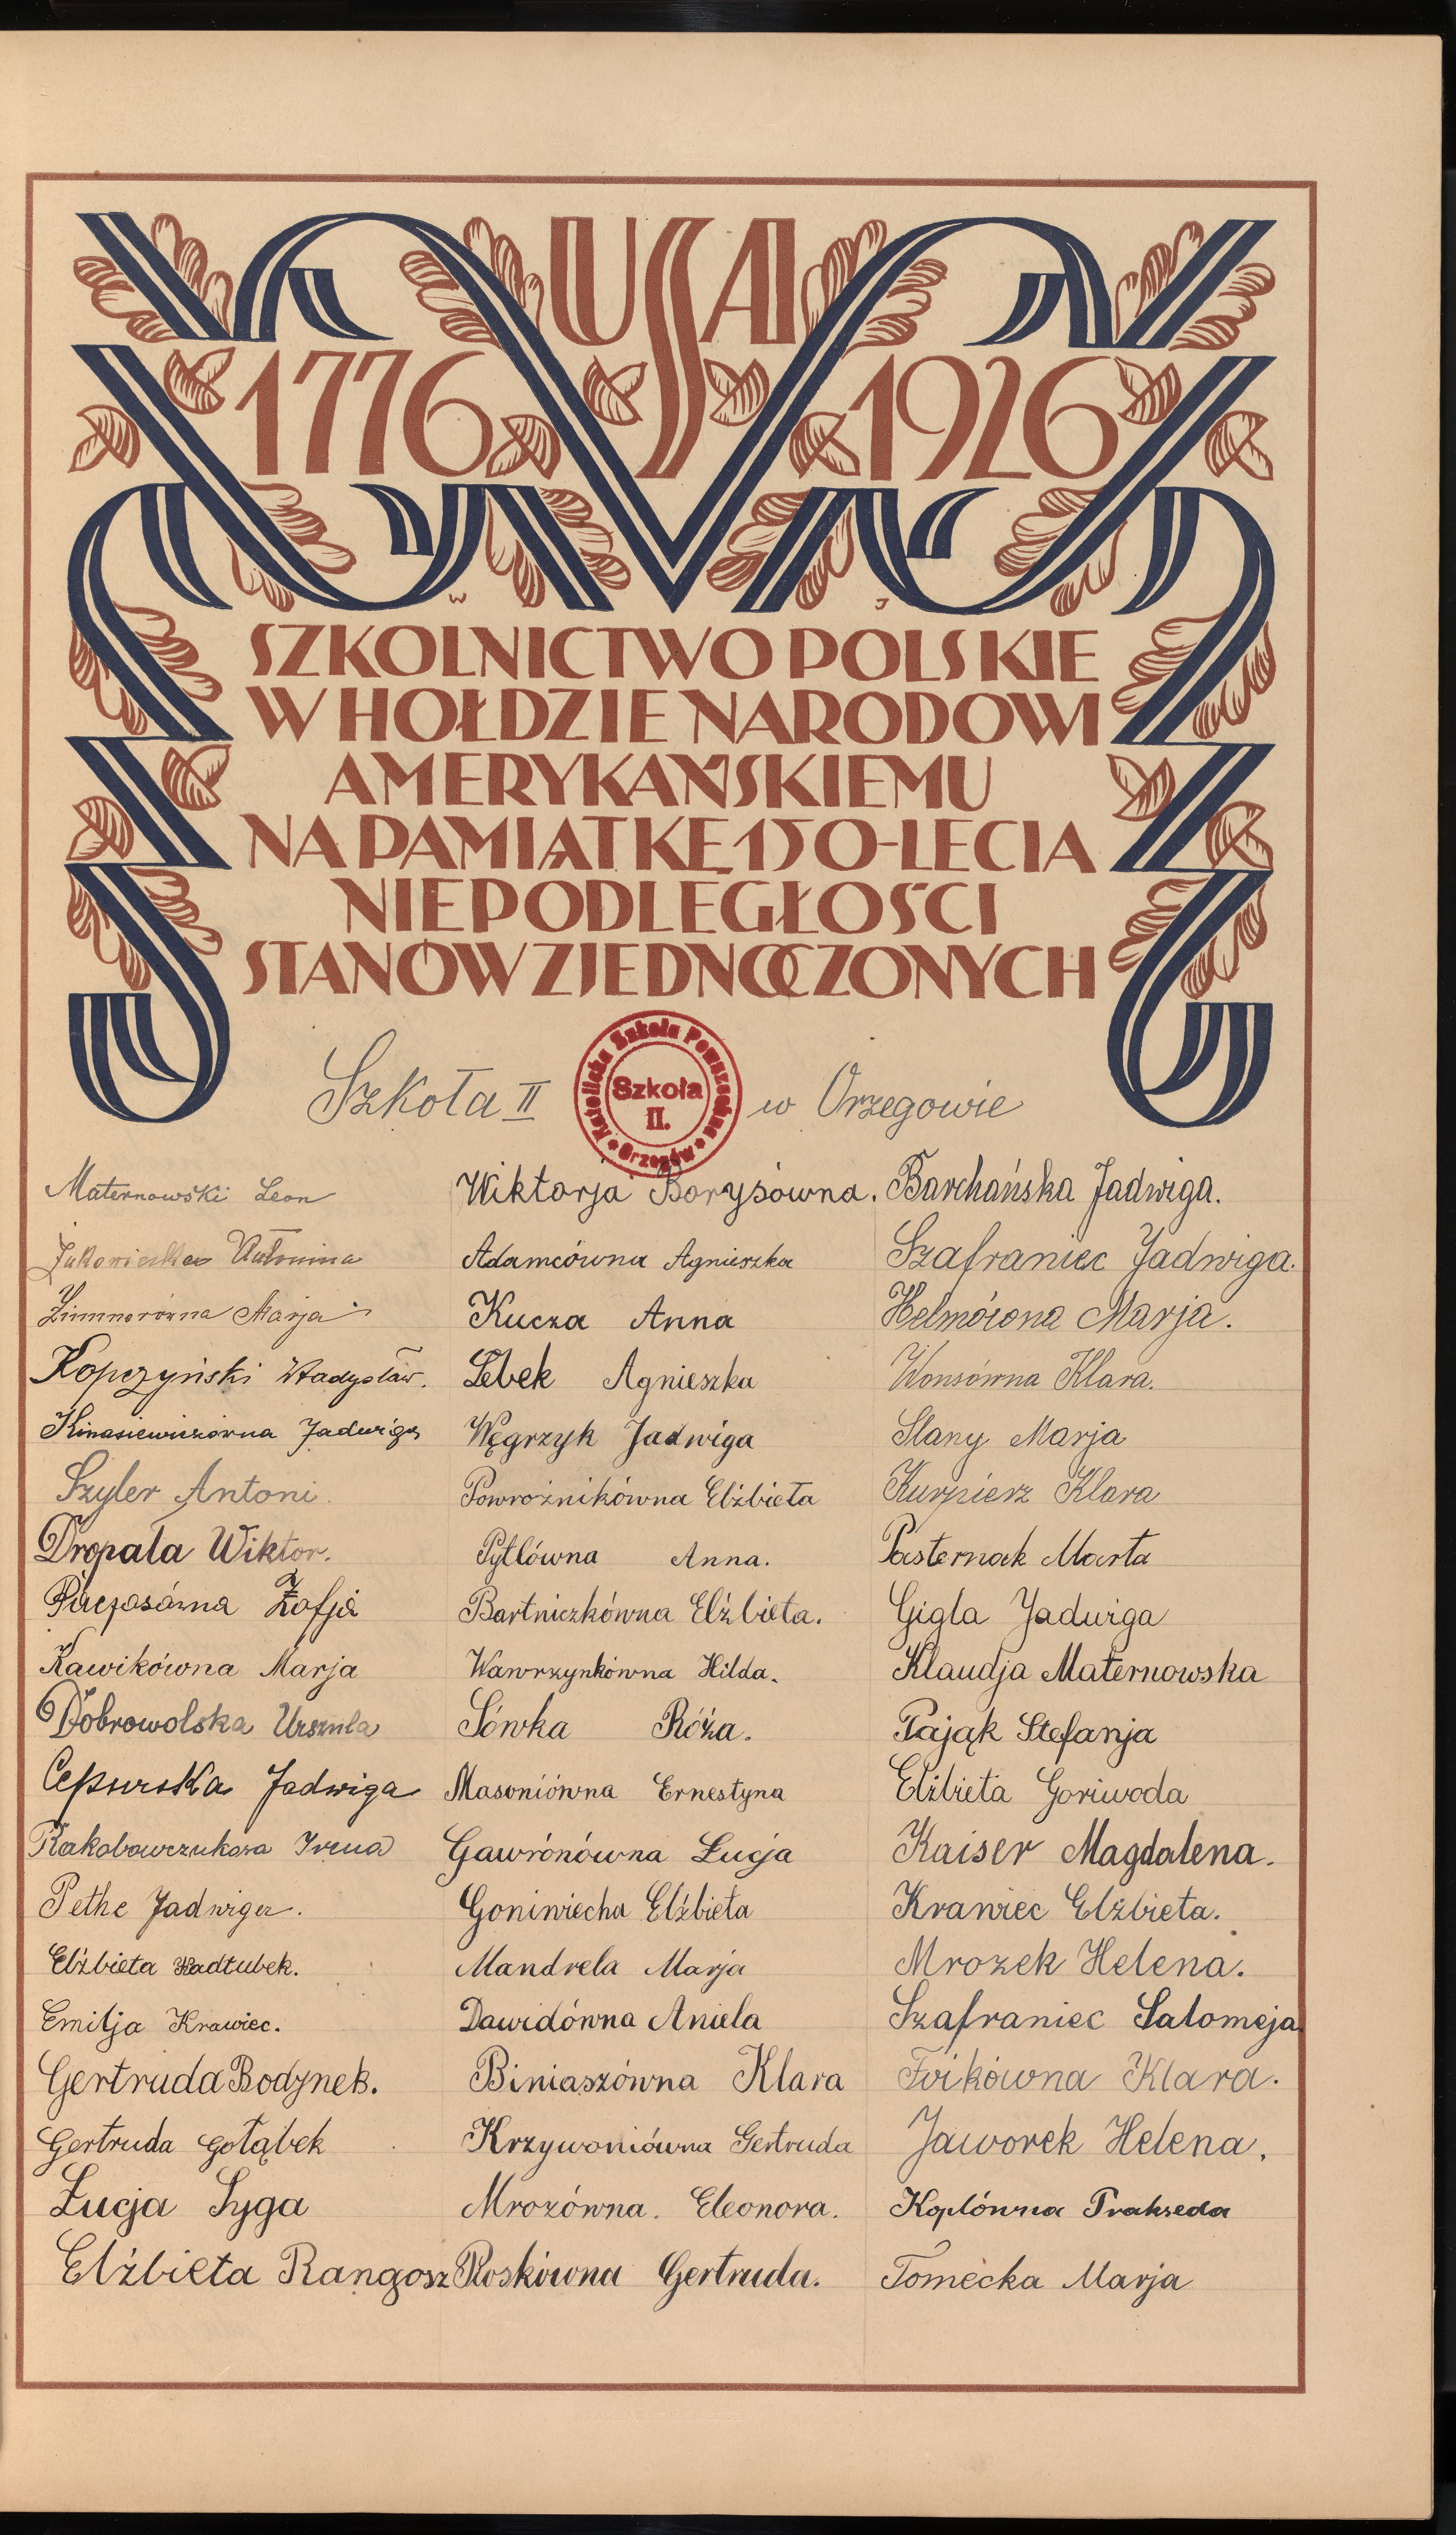 USA
1776 1926
W J
SZKOLNICTWO POLSKIE
W HOŁDZIE NARODOWI
AMERYKAŃSKIEMU
NA PAMIĄTKĘ 150-LECIA
NIEPODLEGŁOŚCI
STANÓW ZJEDNOCZONYCH
Szkoła II w Orzegowie
Katolicka Szkoła Powszechna
Szkoła
II.
Orzegów
Maternowski Leon
Antonina
Zimmnorówna Marja
Kopczyński Władysław.
Kinasiewiczówna Jadwiga
Szyler Antoni.
Dropała Wiktor.
Zofja
Kawikówna Marja
Dobrowolska Urszula
Cepurska Jadwiga
Irena
Pethe Jadwiga.
Elżbieta Kadłubek.
Emilja Krawiec.
Gertruda Bodynek.
Gertruda Gołąbek
Łucja Syga
Elżbieta Rangosz
Wiktorja Borysówna.
Adamcówna Agnieszka
Kucza Anna
Lebek Agnieszka
Węgrzyk Jadwiga
Powrożnikówna Elżbieta
Pytlówna Anna.
Bartniczkówna Elżbieta.
Wawrzynkówna Hilda.
Sówka Róża.
Masoniówna Ernestyna
Gawrónówna Łucja
Goniwiecha Elżbieta
Mandrela Marja
Dawidówna Aniela
Biniaszówna Klara
Krzywoniówna Gertruda
Mrozówna. Eleonora.
Roskówna Gertruda.
Barchańska Jadwiga.
Szafraniec Jadwiga.
Helmówna Marja.
Wonsówna Klara.
Slany Marja
Kurpierz Klara
Pasternak Marta
Gigla Jadwiga
Klaudja Maternowska
Pająk Stefanja
Elżbieta Goriwoda
Kaiser Magdalena.
Krawiec Elżbieta.
Mrozek Helena.
Szafraniec Salomeja.
Klara.
Jaworek Helena.
Koplówna Prakseda
Tomecka Marja